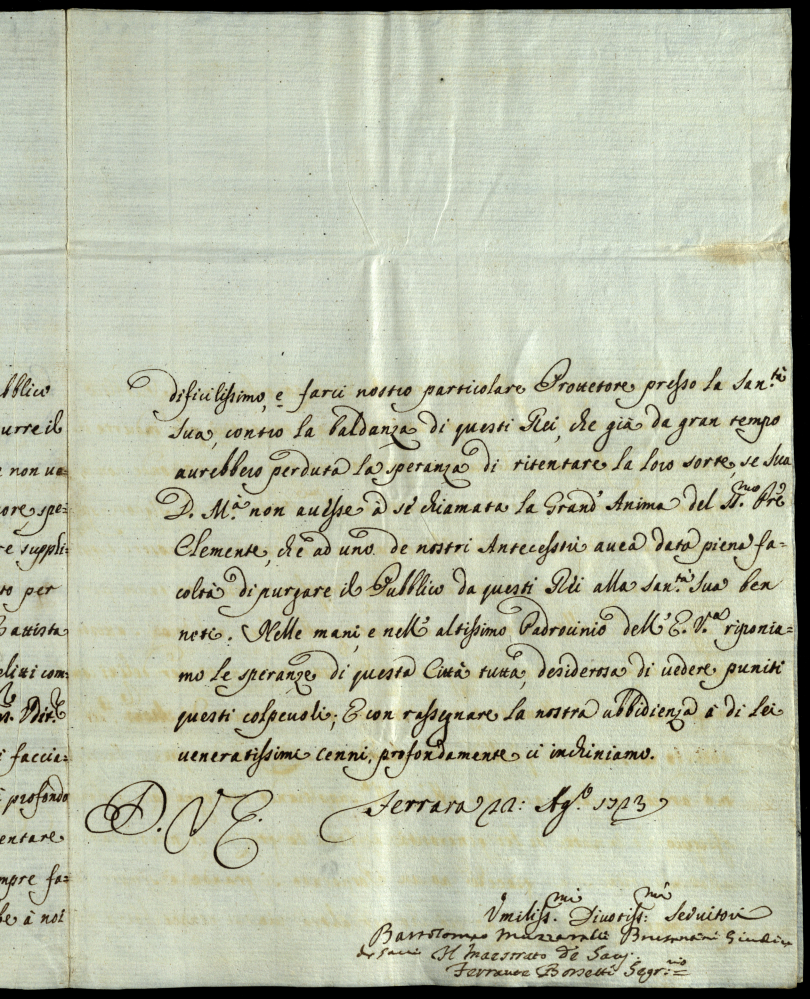 bblico
urre il
e non uo=
ore spe=
re suppli=
to per
Battista
elitti com=
i faccia=
i profondo
entare
mpre fa=
be à noi
dificilissimo, e farci nostro particolare Protettore presso la San.tà
Sua, contro la baldanza di questi Rei, che già da gran tempo
aurebbero perduta la speranza di ritentare la loro sorte, se Sua
D. M.à non auesse à sé chiamata la Grand' Anima del S.mo Pre
Clemente, che ad uno de nostri Antecessori auea dato piena fa=
coltà di purgare il Pubblico da questi Rei alla San.tà Sua ben
noti. Nelle mani, e nell' altissimo Padrocinio dell' E. V.a riponia=
mo le speranze di questa Città tutta, desiderosa di uedere puniti
questi colpeuoli; E con rassegnare la nostra ubbidienza à di Lei
ueneratissimi cenni, profondamente ci inchiniamo.
D. V. E. Ferrara 22: Ag.o 1723
Vmiliss.mi Diuotiss.mi Seruitori
Bartolomeo Giudice
de Sauj Il Maestrato de Sauj
Ferrante Borsetti Segr.rio